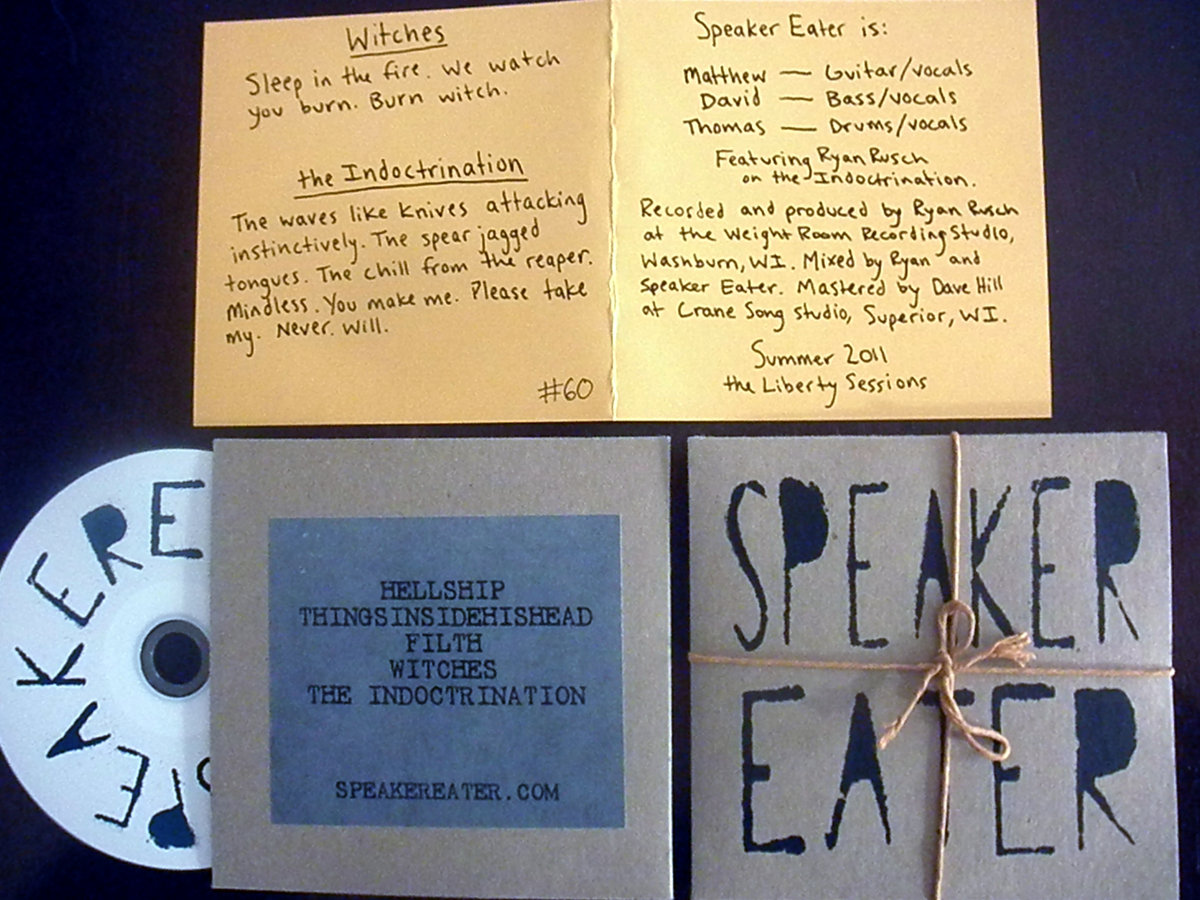 Witches
Sleep in the fire. We watch
you burn. Burn witch.
the Indoctrination
The waves like knives attacking
instinctively. The spear jagged
tongues. The chill from the reaper.
Mindless. You make me. Please take
my. Never. Will.
#60
Speaker Eater is:
Matthew — Guitar/vocals
David — Bass/vocals
Thomas — Drums/vocals
Featuring Ryan Rusch
on the Indoctrination.
Recorded and produced by Ryan Rusch
at the Weight Room Recording Studio,
Washburn, WI. Mixed by Ryan and
Speaker Eater. Mastered by Dave Hill
at Crane Song Studio, Superior, WI.
Summer 2011
the Liberty Sessions
SPEAKER E
HELLSHIP
THINGSINSIDEHISHEAD
FILTH
WITCHES
THE INDOCTRINATION
SPEAKEREATER.COM
SPEAKER
EATER